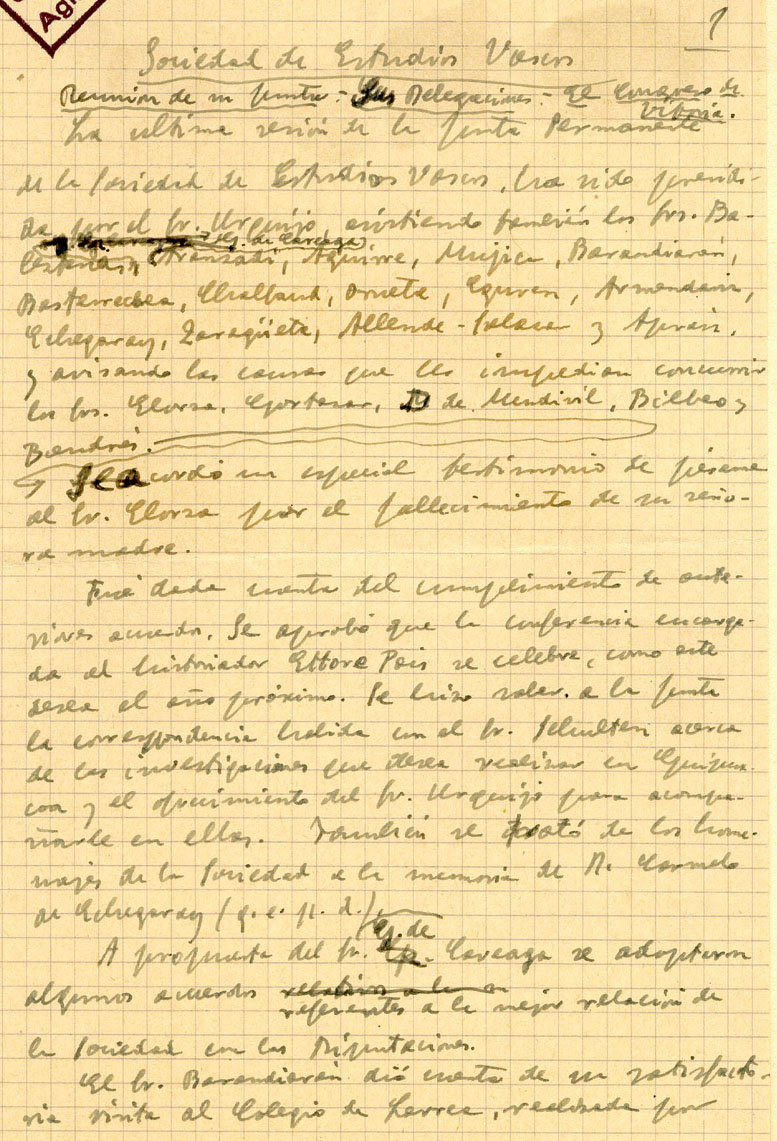 1
Sociedad de Estudios Vascos
Reunión de su Junta - Sus Delegaciones - El Congreso de
Vitoria.
La ultima sesión de la Junta Permanente
de la Sociedad de Estudios Vascos, ha sido presidi-
da por el Sr. Urquijo asistiendo también los Srs. Ba-
G. de Careaga
Aranzadi, Aguirre, Mujica, Barandiarán,
Bastarrechea, Chalbaud, Orueta, Eguren, Armendariz,
Echegaray, Zaragüeta, Allende-Salazar y Apraiz,
y avisando las causas que les impedian concurrir
los Srs. Elorza, Gortazar, D de Mendivil, Bilbao y
Bandrés.
Se acordó un especial testimonio de pésame
al Sr. Elorza por el fallecimiento de su seño-
ra madre.
Fué dada cuenta del cumplimiento de ante-
riores acuerdos. Se aprobó que la conferencia encarga-
da al historiador Ettore Pais se celebre, como este
desea el año próximo. Se hizo saber a la Junta
la correspondencia habida con el Sr. Schulten acerca
de las investigaciones que desea realizar en Guipuz-
coa y el ofrecimiento del Sr. Urquijo para acompa-
ñarle en ellas. También se trató de los home-
najes de la Sociedad a la memoria de D. Carmelo
de Echegaray (q. e. p. d.)
G. de
A propuesta del Sr. Careaga se adoptaron
algunos acuerdos relativos a la
referentes a la mejor relación de
la Sociedad con las Diputaciones.
El Sr. Barandiarán dió cuenta de su satisfacto-
ria visita al Colegio de Lecaroz, realizada por